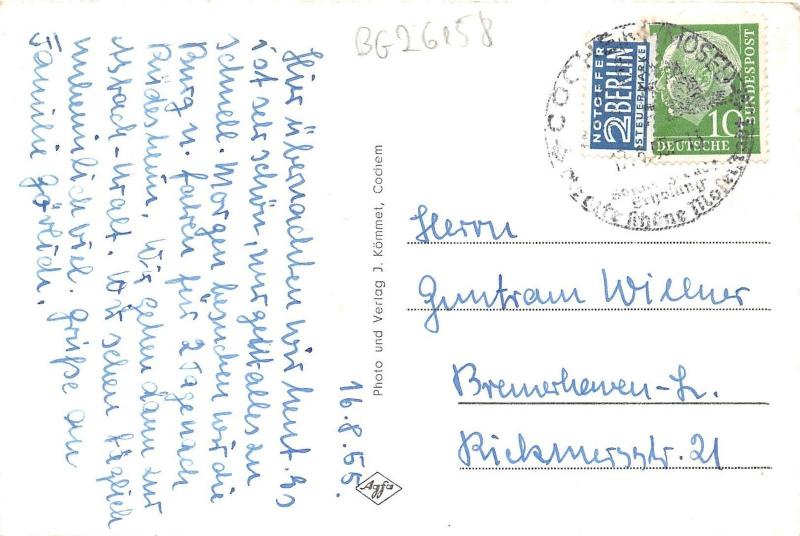 BG26158
16.8.55.
Hier übernachten wir heut. Es
ist sehr schön, nur geht alles zu
schnell. Morgen besuchen wir die
Burg u. fahren für 2 Tage nach
Rüdesheim. Wir gehen dann zur
Asbach-Uralt. Wir sehen täglich
unheimlich viel. Grüße an
Familie Görlich.
Photo und Verlag J. Kömmet, Cochem
Agfa
NOTOPFER
2 BERLIN
STEUERMARKE
DEUTSCHE BUNDESPOST
10
COCHEM (MOSEL)
Herrn
Guntram Willner
Bremerhaven-L.
Rickmersstr. 21